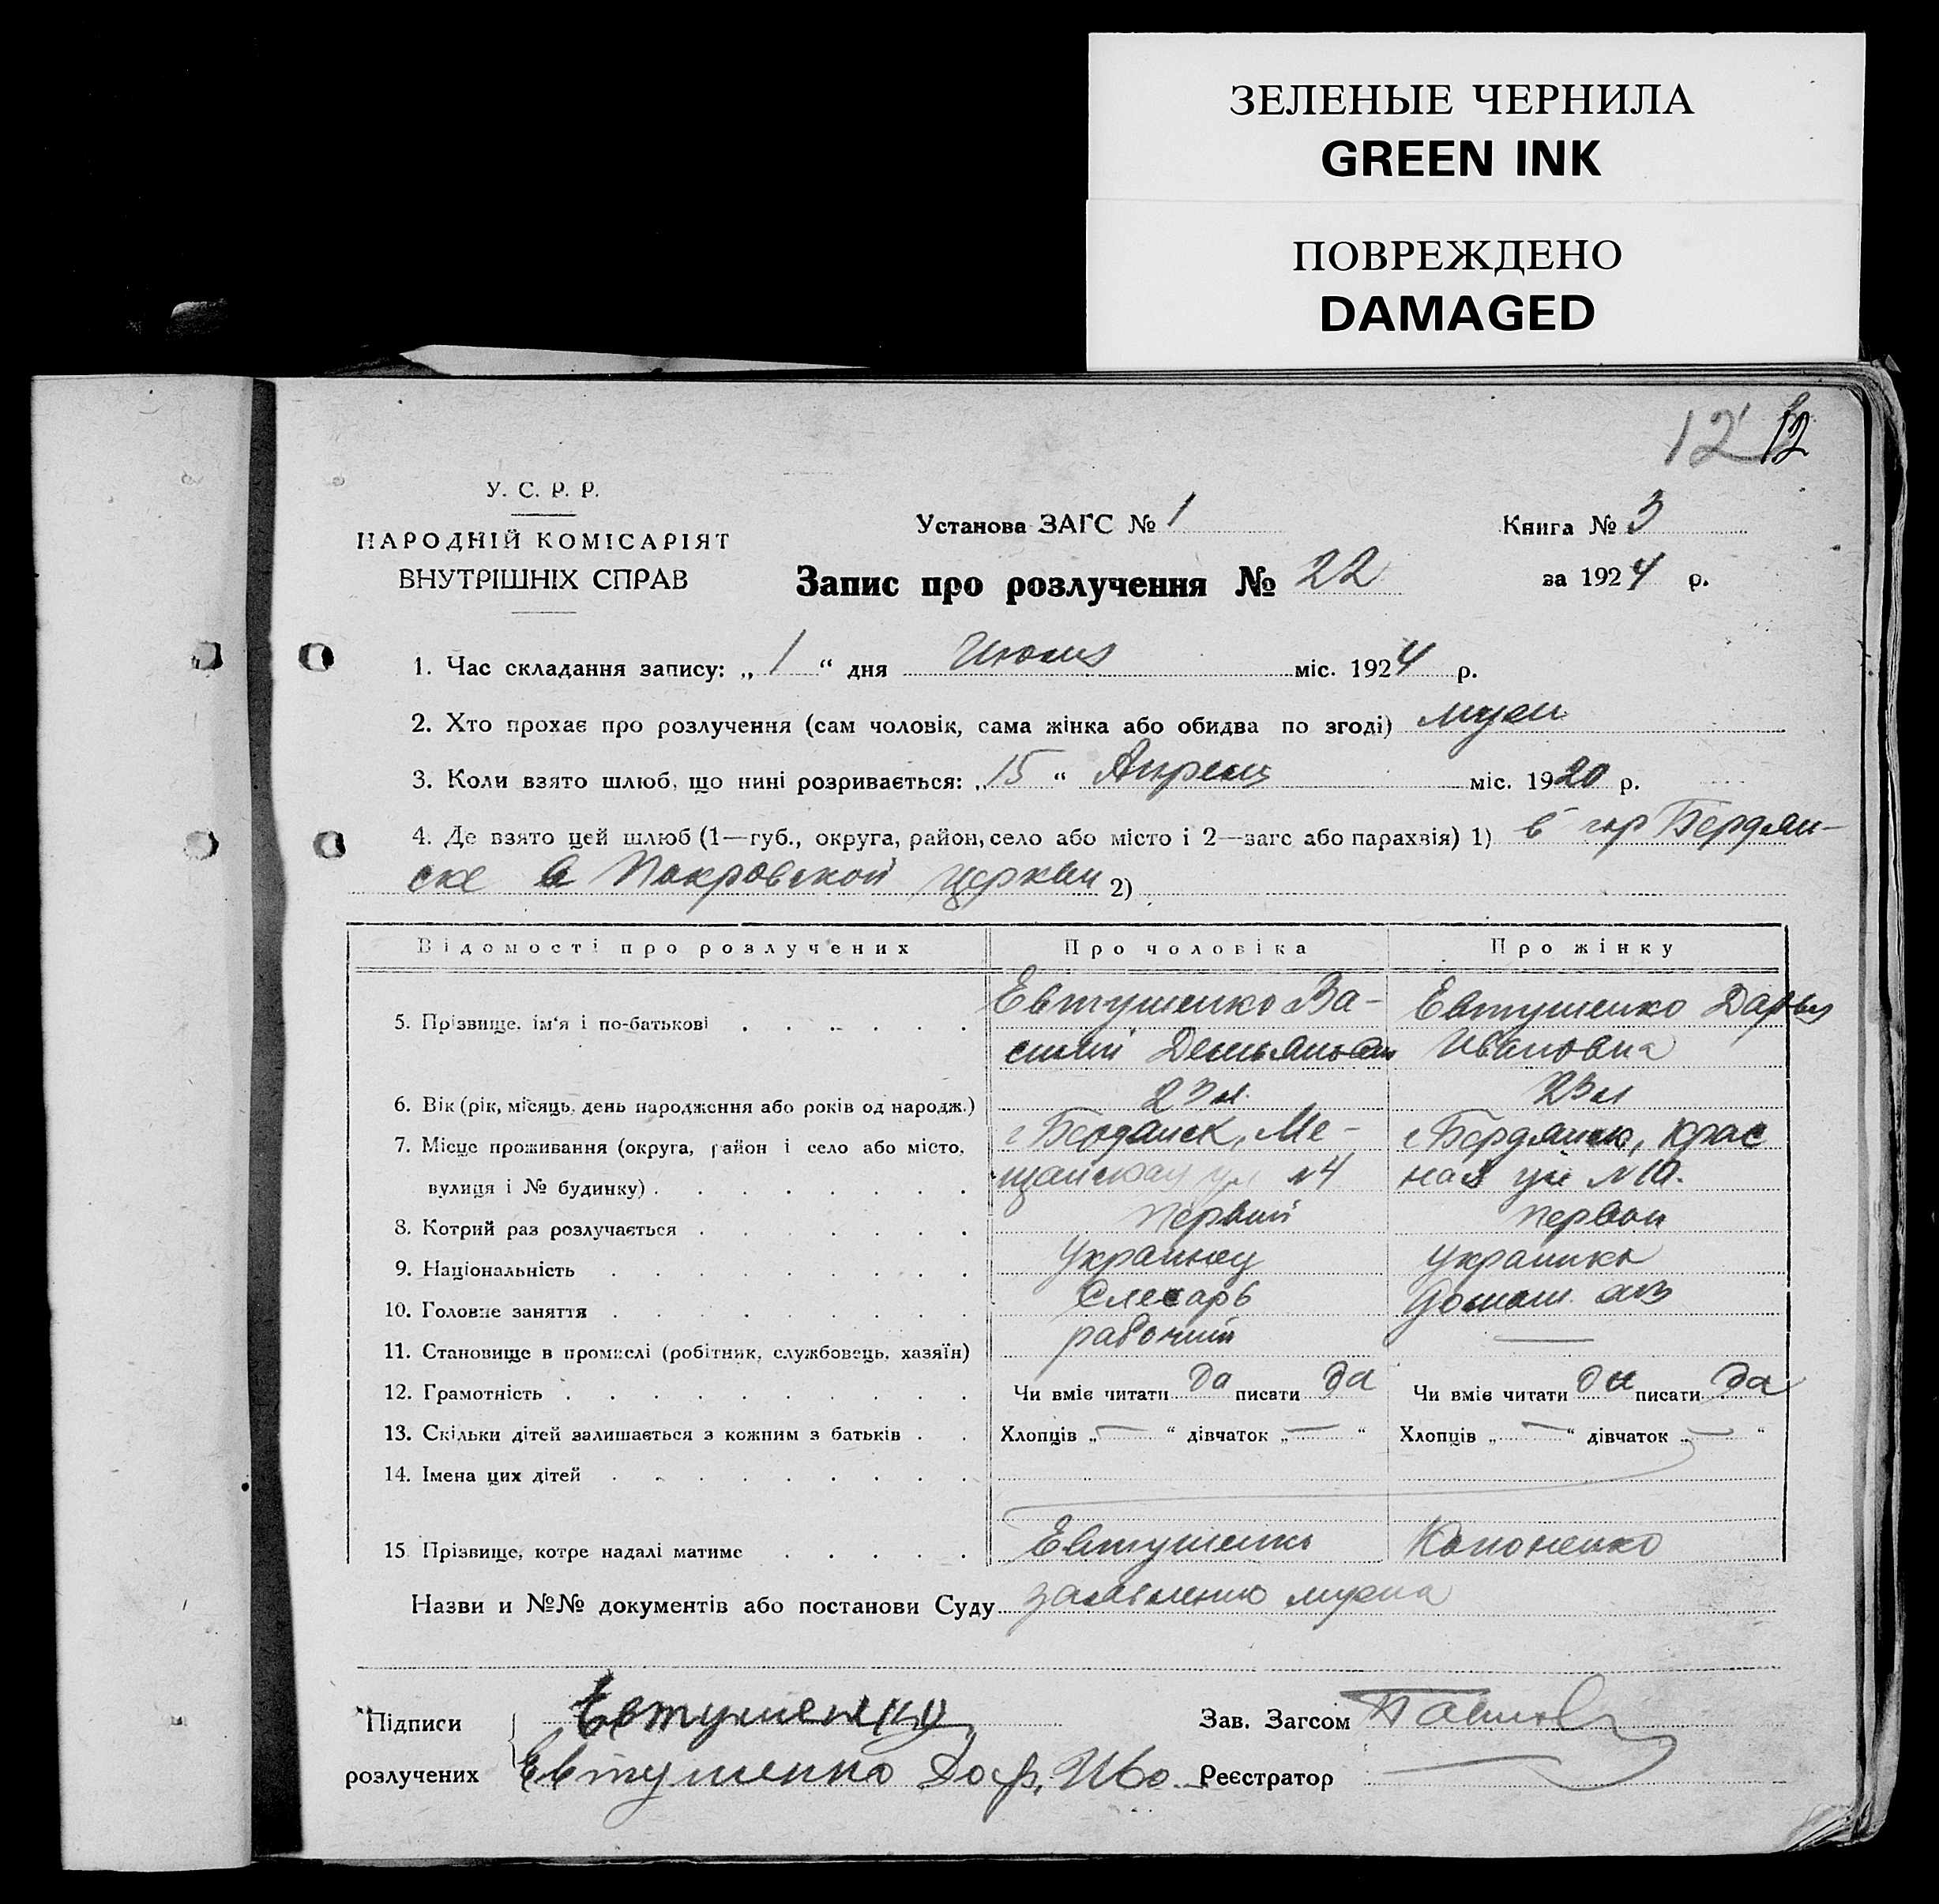 ЗЕЛЕНЫЕ ЧЕРНИЛА
GREEN INK
ПОВРЕЖДЕНО
DAMAGED
12 12
У. С. Р. Р.
НАРОДНІЙ КОМІСАРІЯТ
ВНУТРІШНІХ СПРАВ
Установа ЗАГС № 1
Книга № 3
Запис про розлучення № 22
за 1924 р.
1. Час складання запису: „ 1 “ дня Июля міс. 1924 р.
2. Хто прохає про розлучення (сам чоловік, сама жінка або обидва по згоді) муж
3. Коли взято шлюб, що нині розривається: „ 15 “ Апреля міс. 1920 р.
4. Де взято цей шлюб (1—губ., округа, район, село або місто і 2—загс або парахвія) 1) в гор Бердян-
ске в Покровской церкви 2)
Відомості про розлучених Про чоловіка Про жінку
5. Прізвище, ім'я і по-батькові Евтушенко Ва- Евтушенко Дарья
силий Демьянов Ивановна
6. Вік (рік, місяць, день народження або років од народж.) 23 л. 23 л
7. Місце проживання (округа, район і село або місто, г Бердянск, Ме- г Бердянск, Крас
вулиця і № будинку) щанская ул №4 ная ул №10.
8. Котрий раз розлучається Первый Первый
9. Національність Украинец Украинка
10. Головне заняття Слесарь Домаш. хоз
11. Становище в промислі (робітник, службовець, хазяїн) рабочий —
12. Грамотність Чи вміє читати да писати да Чи вміє читати да писати да
13. Скільки дітей залишається з кожним з батьків Хлопців „ — “ дівчаток „ — “ Хлопців „ — “ дівчаток „ — “
14. Імена цих дітей
15 Прізвище, котре надалі матиме Евтушенко Кононенко
Назви и №№ документів або постанови Суду заявление мужа
Підписи Евтушенко Зав. Загсом
розлучених Евтушенко Реєстратор